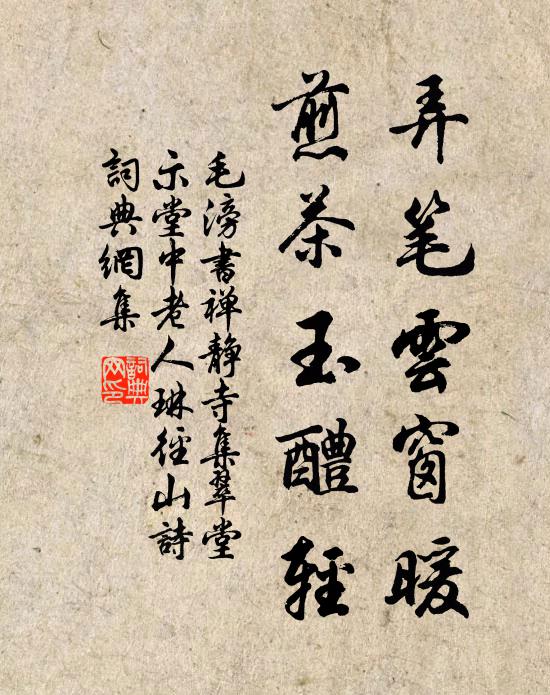 弄笔雲窗暖
煎茶玉醴輕
毛滂書禅静寺集翠堂
示堂中老人琳徑山詩
詞典網集
詞典網印